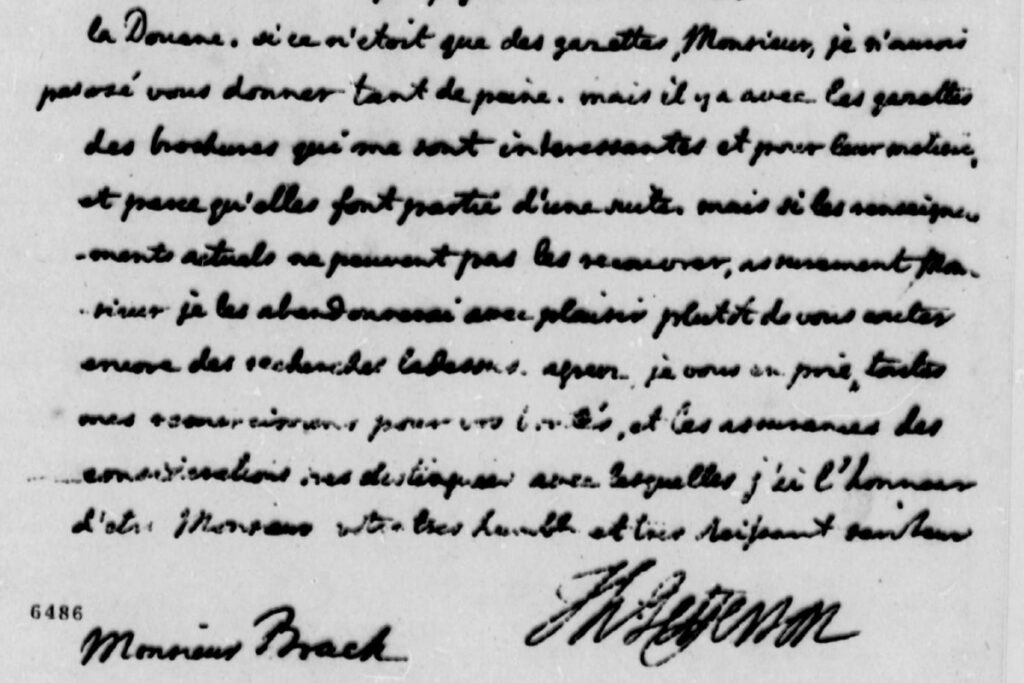 la Douane. si ce n'etoit que des gazettes, Monsieur, je n'aurois
pas osé vous donner tant de peine. mais il y a avec les gazettes
des brochures qui me sont interessantes et pour leur matiere,
et parce qu'elles font partie d'une suite. mais si les renseigne
-ments actuels ne peuvent pas les recouvrer, assurement Mon-
-sieur je les abandonnerai avec plaisir plutot de vous couter
encore des recherches ladessus. agreez je vous en prie, toutes
mes remercimens pour vos bontés, et les assurances des
considerations tres distinguées avec lesquelles j'ai l'honneur
d'etre Monsieur votre tres humble et tres obeissant serviteur
Th: Jefferson
6486
Monsieur Brack